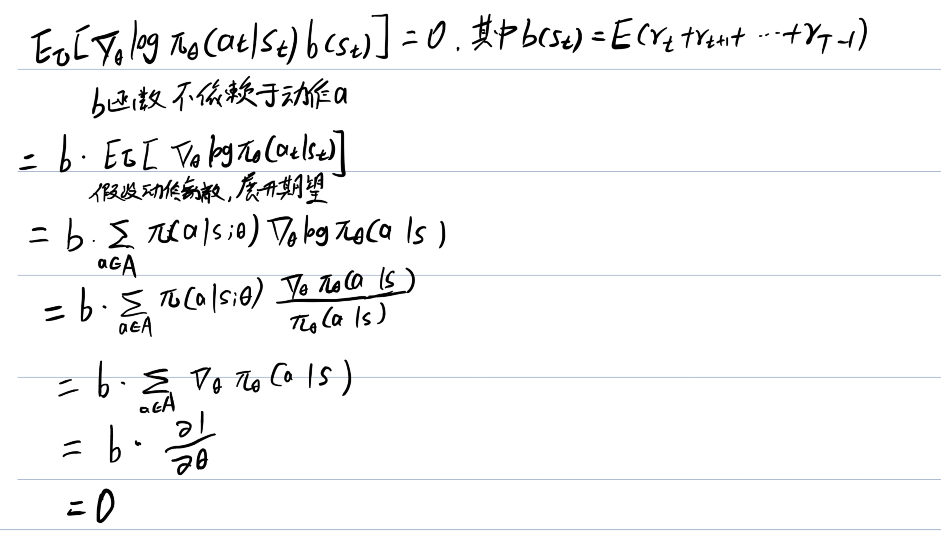 E_τ[∇_θ log π_θ(a_t|s_t) b(s_t)] = 0. 其中 b(s_t) = E(r_t + r_{t+1} + ⋯ + r_{T-1})
b函数不依赖于动作a
= b · E_τ[∇_θ log π_θ(a_t|s_t)]
假设动作离散, 展开期望
= b · ∑_{a∈A} π(a|s;θ) ∇_θ log π_θ(a|s)
= b · ∑_{a∈A} π(a|s;θ) \frac{∇_θ π_θ(a|s)}{π_θ(a|s)}
= b · ∑_{a∈A} ∇_θ π_θ(a|s)
= b · \frac{∂1}{∂θ}
= 0